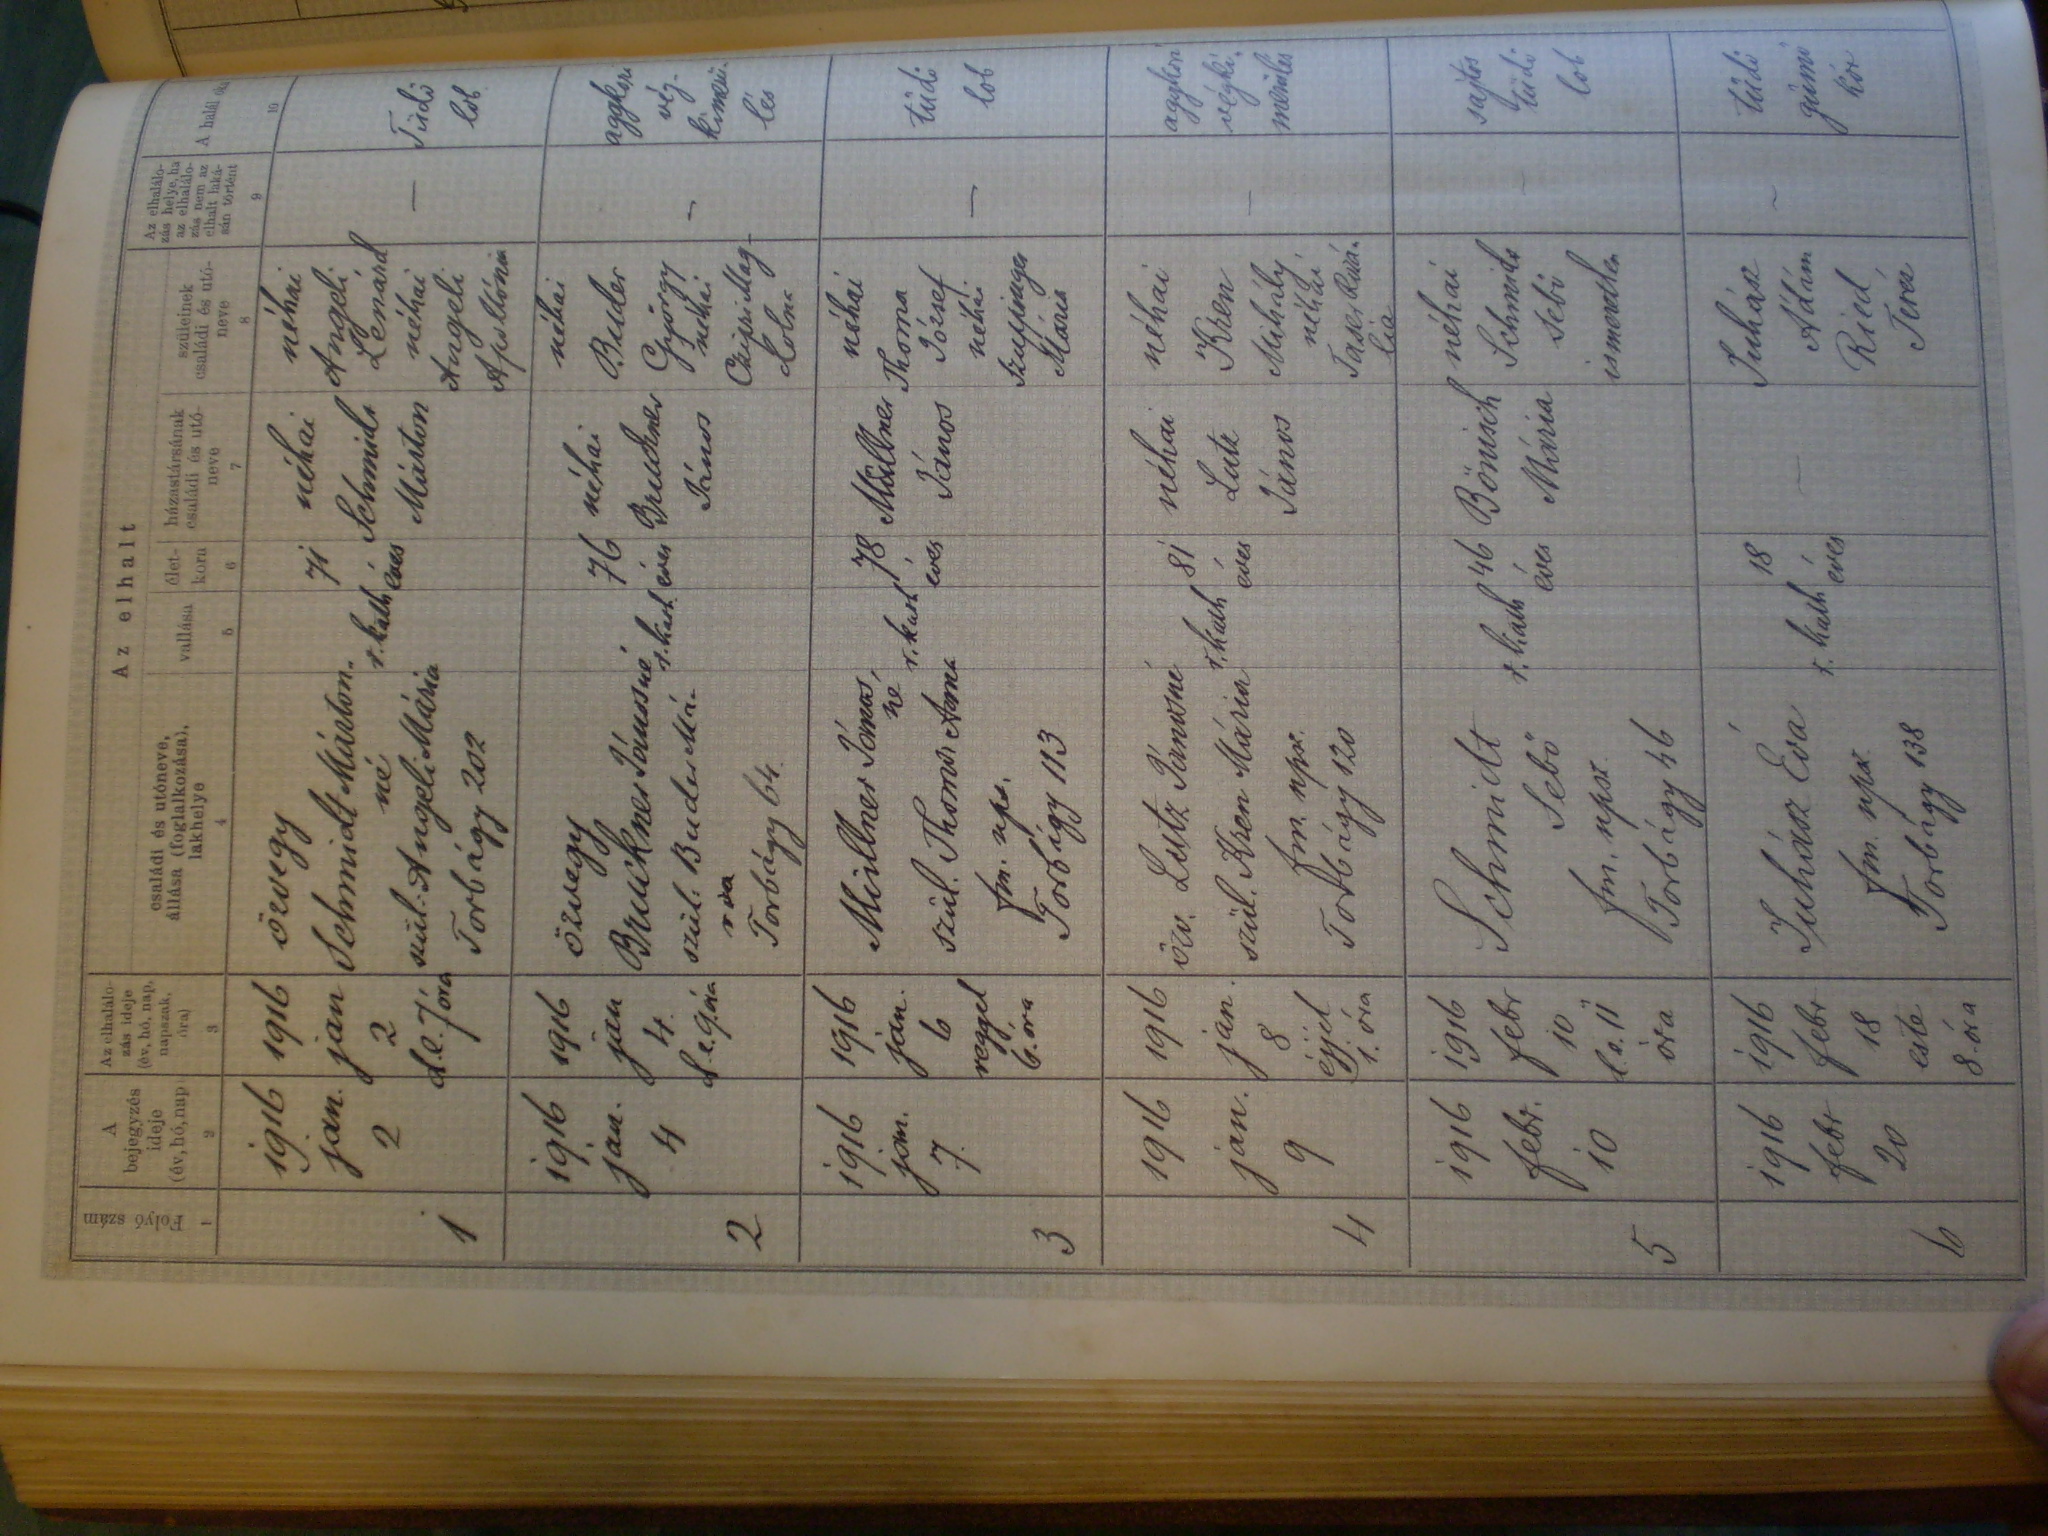 Az elhalt
Folyó szám
1
A
bejegyzés
ideje
(év, hó, nap
2
Az elhalálo-
zás ideje
(év, hó, nap,
napszak,
óra)
3
családi és utóneve,
állása (foglalkozása),
lakhelye
4
vallása
5
élet-
kora
6
házastársának
családi és utó-
neve
7
szüleinek
családi és utó-
neve
8
Az elhalálo-
zás helye, ha
az elhalálo-
zás nem az
elhalt laká-
sán történt
9
A halál
10
1
1916
jan.
2
1916
jan
2
d.e. 7 óra
özvegy
Schmidt Márton-
né
szül. Angeli Mária
Torbágy 202
r. kath
71
éves
néhai
Schmidt
Márton
néhai
Angeli
Lénárd
néhai
Angeli
Apolónia
—
Tüdő
lob
2
1916
jan.
4
1916
jan
4.
d.e. 9 óra
özvegy
Bruckner Jánosné
szül. Buder Má-
ria
Torbágy 64.
r. kath
76
éves
néhai
Bruckner
János
néhai
Buder
György
néhai
Mag-
dolna
—
aggkori
vég-
kimerü-
lés
3
1916
jan.
7.
1916
jan.
6
reggel
6. óra
Müllner János,
né
szül. Thoma Anna
fm. nps.
Torbágy 113
r. kath
78
éves
Müllner
János
néhai
Thoma
József
néhai
Mária
—
tüdő
lob
4
1916
jan.
9
1916
jan.
8
éjjel
1. óra
özv. Lutz Jánosné
szül. Kren Mária
fm. npsz.
Torbágy 120
r. kath
81
éves
néhai
Lutz
János
néhai
Kren
Mihály
néhai
—
aggkori
végki-
merülés
5
1916
febr.
10
1916
febr
10
d.e. 11
óra
Schmidt
Sebő
fm. npsz.
Torbágy 46
r. kath
46
éves
Bönisch
Mária
néhai
Schmidt
Sebő
ismeretlen
—
sajtos
tüdő
lob
6
1916
febr
20
1916
febr
18
este
8. óra
Juhász Éva
fm. npsz.
Torbágy 138
r. kath
18
éves
—
Juhász
Ádám
Ried
Teréz
~
tüdő
gümő
kór